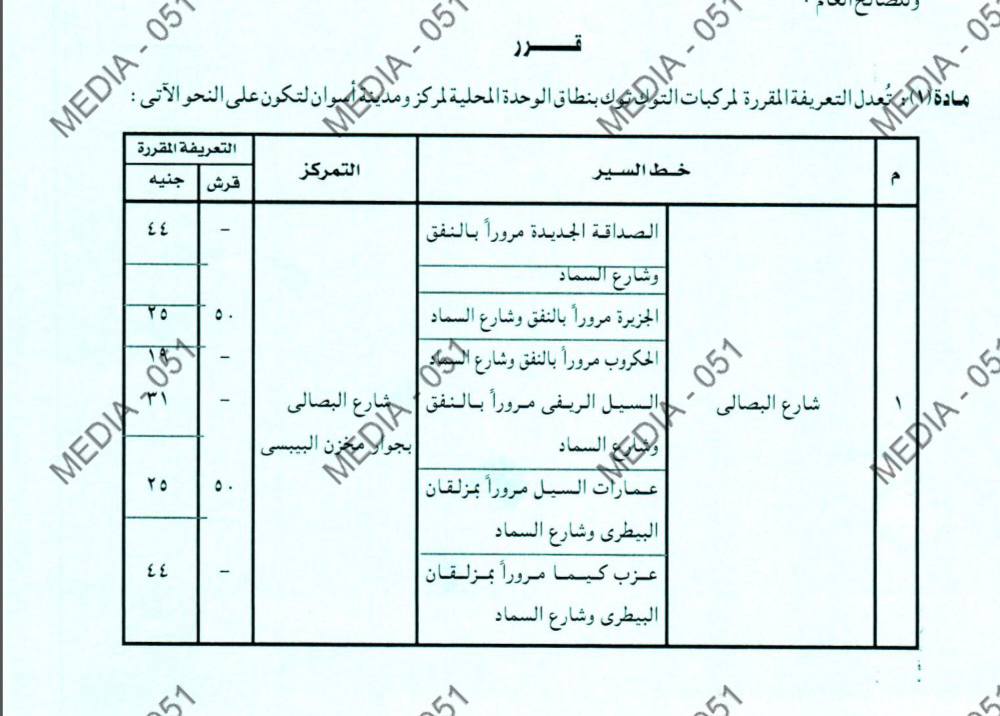 وللصالح العام .
قـــــرر
مـادة (١) : تُعدل التعريفة المقررة لمركبات التوك توك بنطاق الوحدة المحلية لمركز ومدينة أسوان لتكون على النحو الآتى :
م
خـط السـير
التمركز
التعريفة المقررة
قرش
جنيه
١
شارع البصالى
الصداقة الجديدة مروراً بالنفق
وشارع السماد
شارع البصالى
بجوار مخزن البيبسى
-
٤٤
الجزيرة مروراً بالنفق وشارع السماد
٥٠
٢٥
الحكروب مروراً بالنفق وشارع السماد
-
١٩
السيل الريفى مروراً بالنفق
وشارع السماد
-
٣١
عمارات السيل مروراً بمزلقان
البيطرى وشارع السماد
٥٠
٢٥
عزب كيما مروراً بمزلقان
البيطرى وشارع السماد
-
٤٤
MEDIA - 051
MEDIA - 051
MEDIA - 051
MEDIA - 051
MEDIA - 051
MEDIA - 051
MEDIA - 051
MEDIA - 051
051
051
051